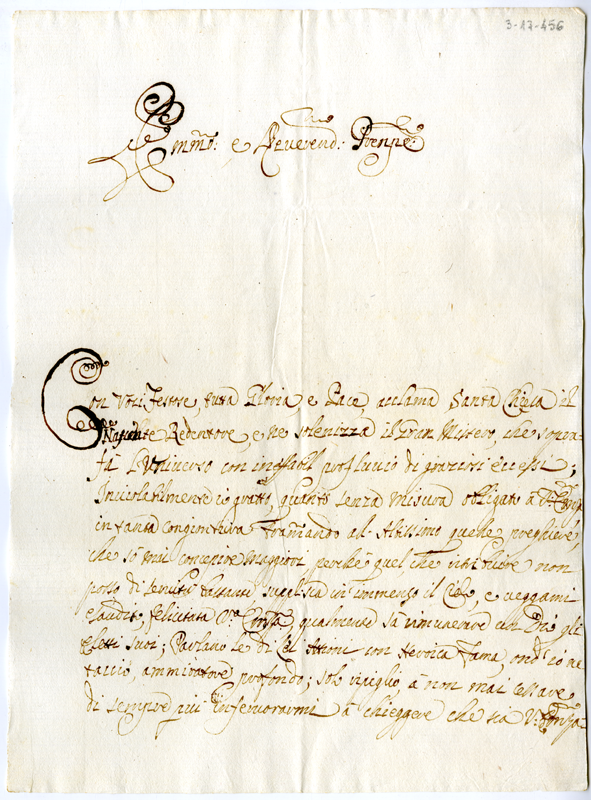 3-17-456
Em̃mo: e Reverend:mo Prenpe:
Con Voci festose, tutta Gloria e Pace, acclama Santa Chiesa il
Nascente Redentore, e ne solenizza il Gran Mistero, che
fà l'Universo con ineffabil profluvio di graziosi eccessi;
Inviolabilmente io grato, quanto senza misura obligato à V:ra Emza
in tanta congiuntura tramando al Altissimo quelle preghiere,
che sò mai concepire Maggiori perche quel, che
posso di servirla bastanti in immenso il Cielo, e veggami
esaudito, felicitata V:ra Emza, qualmente sà rimunerare un Dio gli
Eletti suoi; Parlano le di Lei Attioni con Heroica fama, ond'io ne
taccio, ammiratore profondo; sol ripiglio, à non mai cessare
di sempre più Infervorarmi à chieggere che sia V:ra Emza